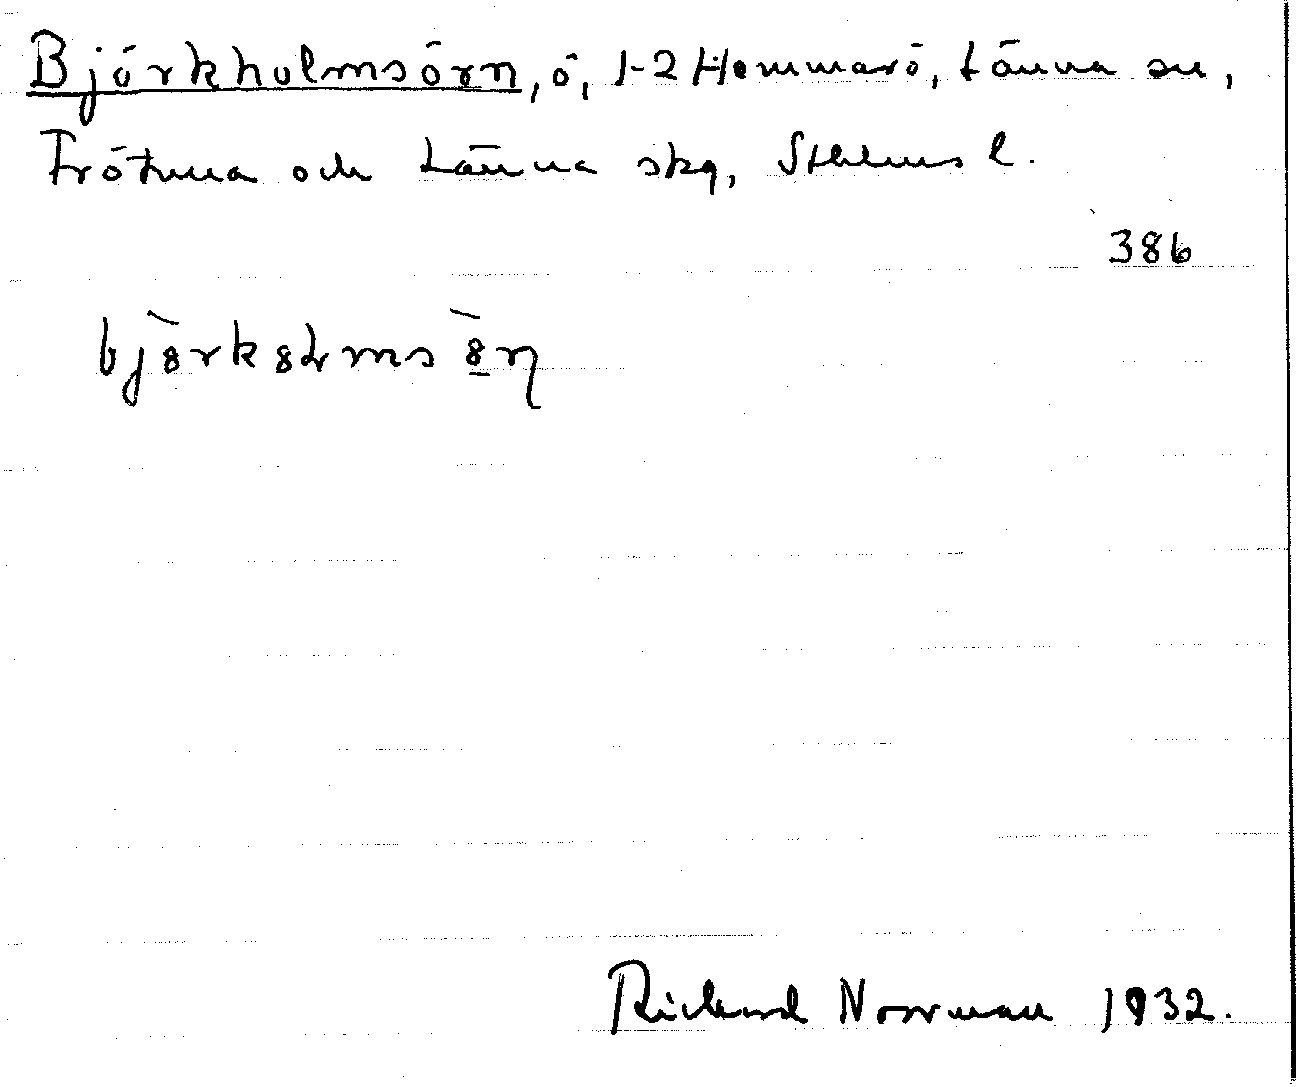 Björkholmsörn, ö, 1-2 Hemmarö, Länna sn,
Frötuna och Länna skg, Sthlms l.
386
bj8̀rk8Lms8̀n
Rickard Norrman 1932.